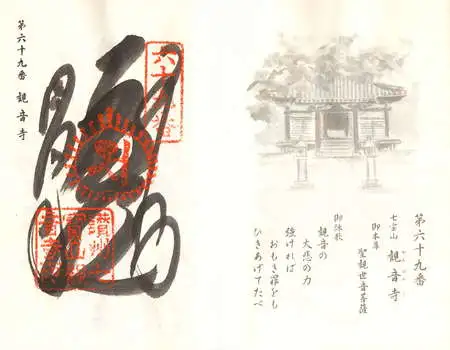 第六十九番
七宝山 観音寺
御本尊
聖観世音菩薩
御詠歌
観音の
大悲の力
強ければ
おもき罪をも
ひきあげてたべ
六十九番
讃州七
寳山観
音寺
第六十九番 観音寺